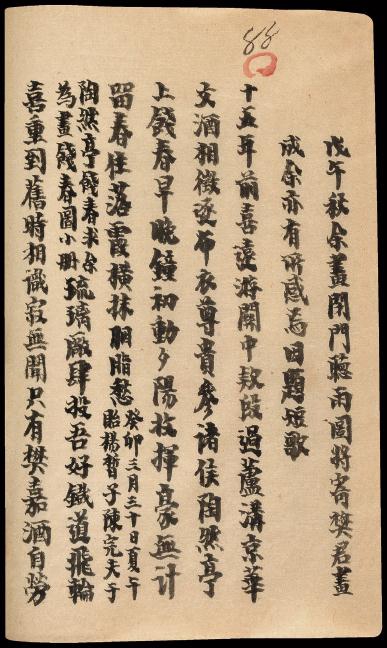 88
戊午秋余畫閉門聽雨圖將寄樊君畫
成余亦有所感為自題短歌
十五年前喜遠游關中款段過蘆溝京華
文酒相徵逐布衣尊貴參諸侯陶然亭
上餞春早晚鐘初動夕陽收揮豪無計
留春住落霞橫抹胭脂愁癸卯三月三十日夏午
貽楊晳子陳完夫于
陶然亭餞春求余
為畫餞春圖小冊琉璃廠肆投吾好鐵道飛輪
喜重到舊時相識寂無聞只有樊嘉酒自勞